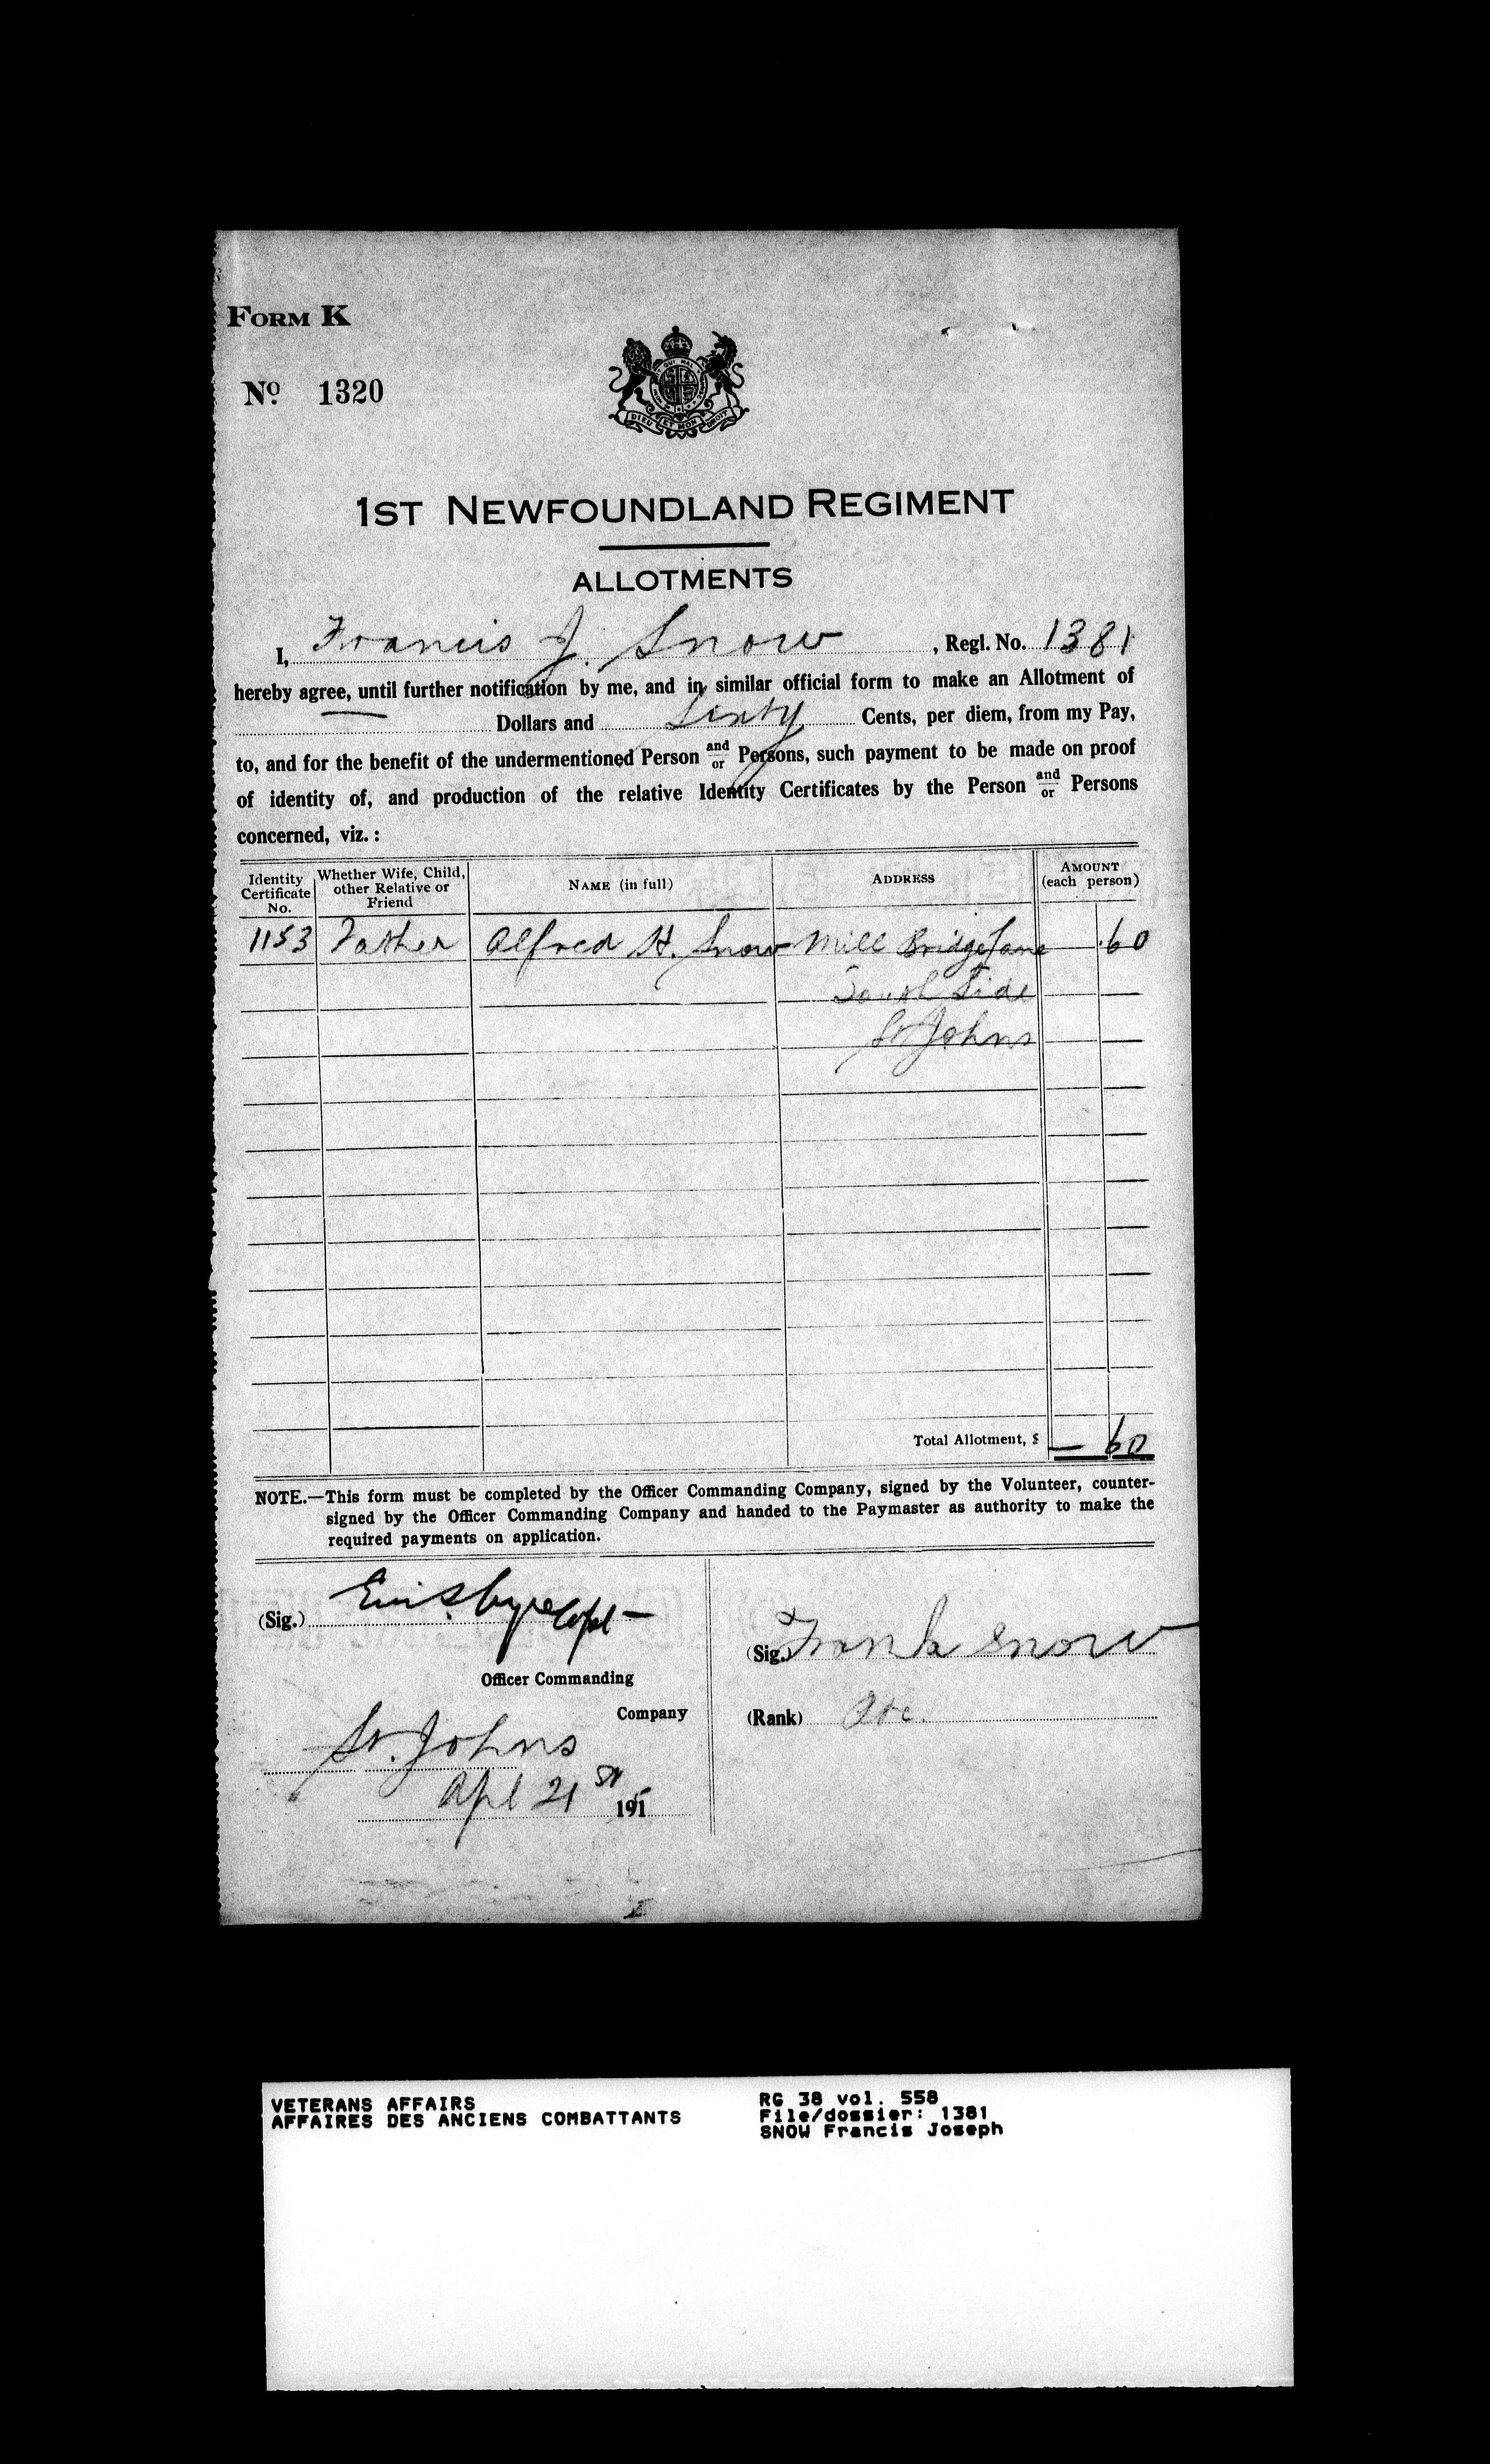 FORM K
No. 1320
DIEU ET MON DROIT
1ST NEWFOUNDLAND REGIMENT
ALLOTMENTS
I, Francis J. Snow, Regl. No. 1381
hereby agree, until further notification by me, and in similar official form to make an Allotment of
— Dollars and Sixty Cents, per diem, from my Pay,
to, and for the benefit of the undermentioned Person and/or Persons, such payment to be made on proof
of identity of, and production of the relative Identity Certificates by the Person and/or Persons
concerned, viz.:
Identity Certificate No. Whether Wife, Child, other Relative or Friend NAME (in full) ADDRESS AMOUNT (each person)
1153 Father Alfred H. Snow Mill Bridge Lane — .60
South Side
St Johns
Total Allotment, $ — 60
NOTE.—This form must be completed by the Officer Commanding Company, signed by the Volunteer, counter-
signed by the Officer Commanding Company and handed to the Paymaster as authority to make the
required payments on application.
(Sig.) Capt
(Sig.) Frank Snow
Officer Commanding
Company
(Rank) Pte.
St. Johns
Apl 21st 1915
VETERANS AFFAIRS
AFFAIRES DES ANCIENS COMBATTANTS
RG 38 vol. 558
File/dossier: 1381
SNOW Francis Joseph